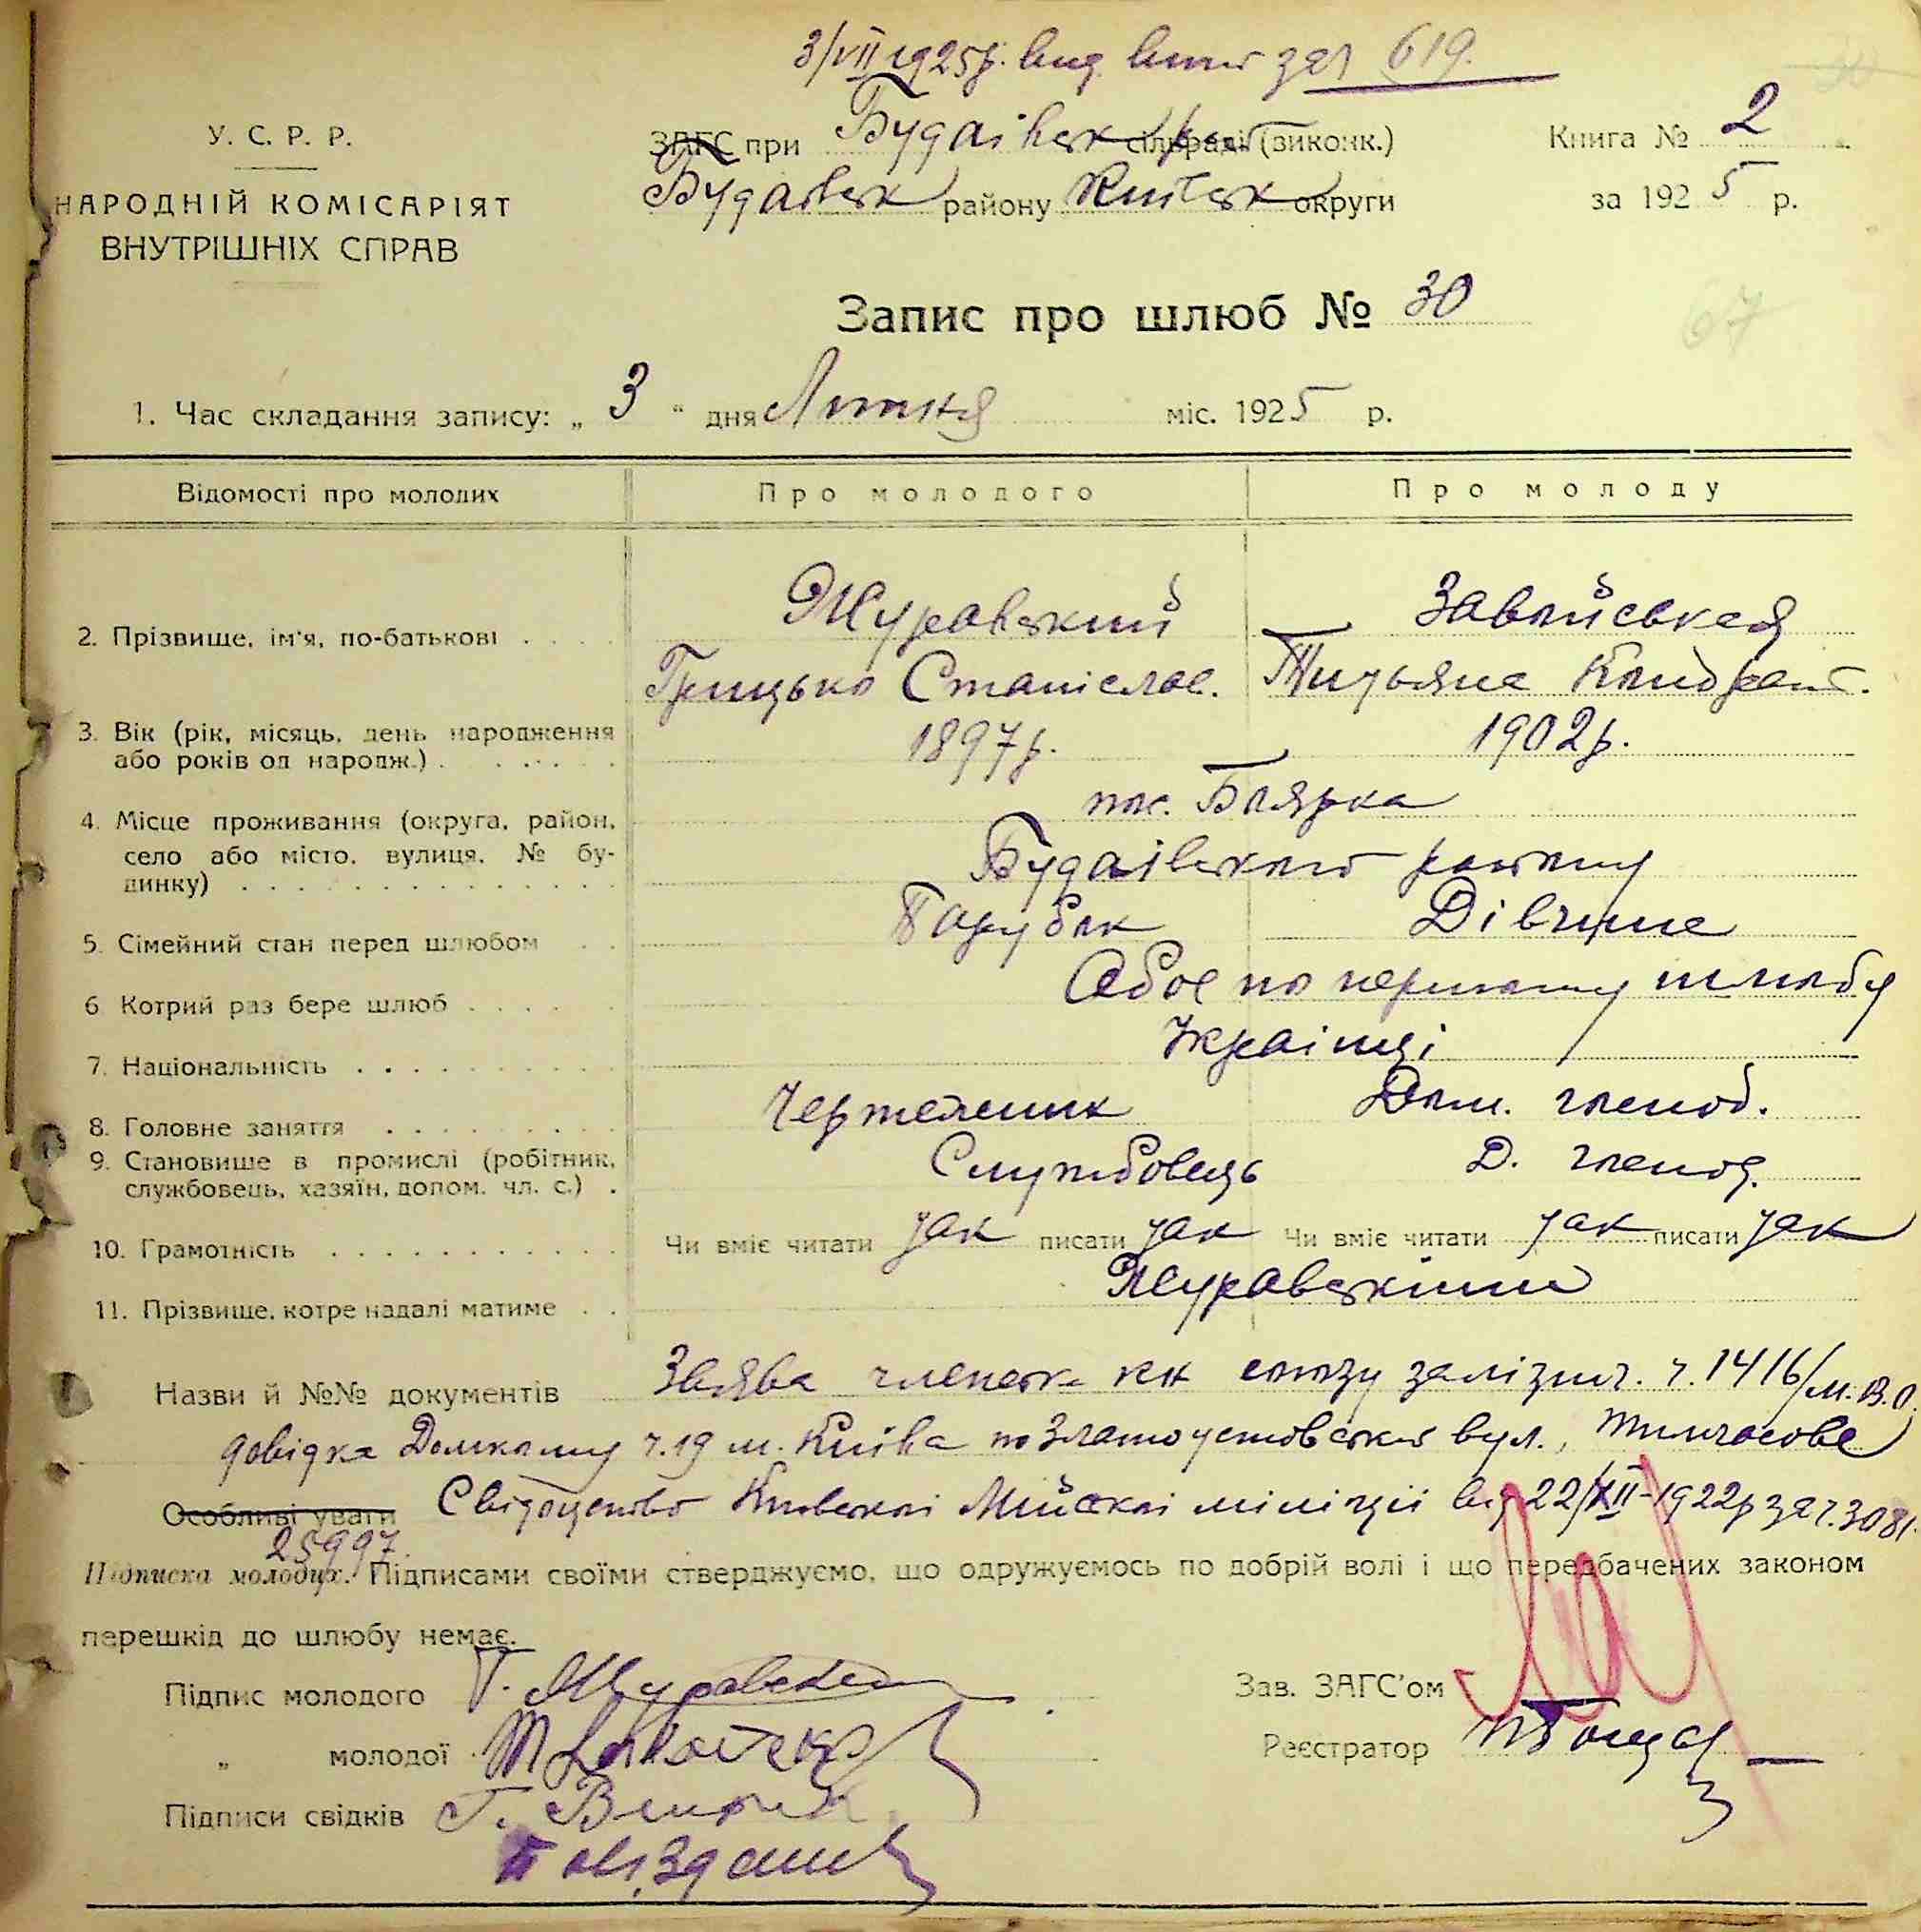 3/VII 1925р. вид. вит за ч 619.
У. С. Р. Р.
НАРОДНІЙ КОМІСАРІЯТ
ВНУТРІШНІХ СПРАВ
ЗАГС при Будаівск сільраді (виконк.)
Будаівск району Київск округи
Книга № 2
за 1925 р.
Запис про шлюб № 30
67
1. Час складання запису: „ 3 " дня Липня міс. 1925 р.
Відомості про молодих Про молодого Про молоду
2. Прізвище, ім'я, по-батькові
Журавский Завойська
Грицько Станіслав. Титьяна Кондрат.
3. Вік (рік, місяць, день народження або років од народж.)
1897р. 1902р.
4. Місце проживання (округа, район, село або місто, вулиця, № будинку)
пос. Боярка
Будаівського району
5. Сімейний стан перед шлюбом Парубок Дівчина
6. Котрий раз бере шлюб Обоє по першому шлюбу
7. Національність Украінці
8. Головне заняття Чертежник Дом. господ.
9. Становище в промислі (робітник, службовець, хазяїн, допом. чл. с.) Службовець Д. господ.
10. Грамотність Чи вміє читати так писати так Чи вміє читати так писати так
11. Прізвище, котре надалі матиме Журавскіми
Назви й №№ документів Заява членск кн союзу залізнич. ч. 1416/М.В.О.
довідка Домкому ч. 19 м. Київа по Златоустовской вул., Тимчасове
Особливі уваги Свідоцтво Киівскоі Мійскоі міліціі від 22/XII-1922р за ч. 3081
25997.
Підписка молодих. Підписами своїми стверджуємо, що одружуємось по добрій волі і що передбачених законом
перешкід до шлюбу немає.
Підпис молодого Г. Журавский
„ молодої
Підписи свідків
Зав. ЗАГС'ом
Реєстратор